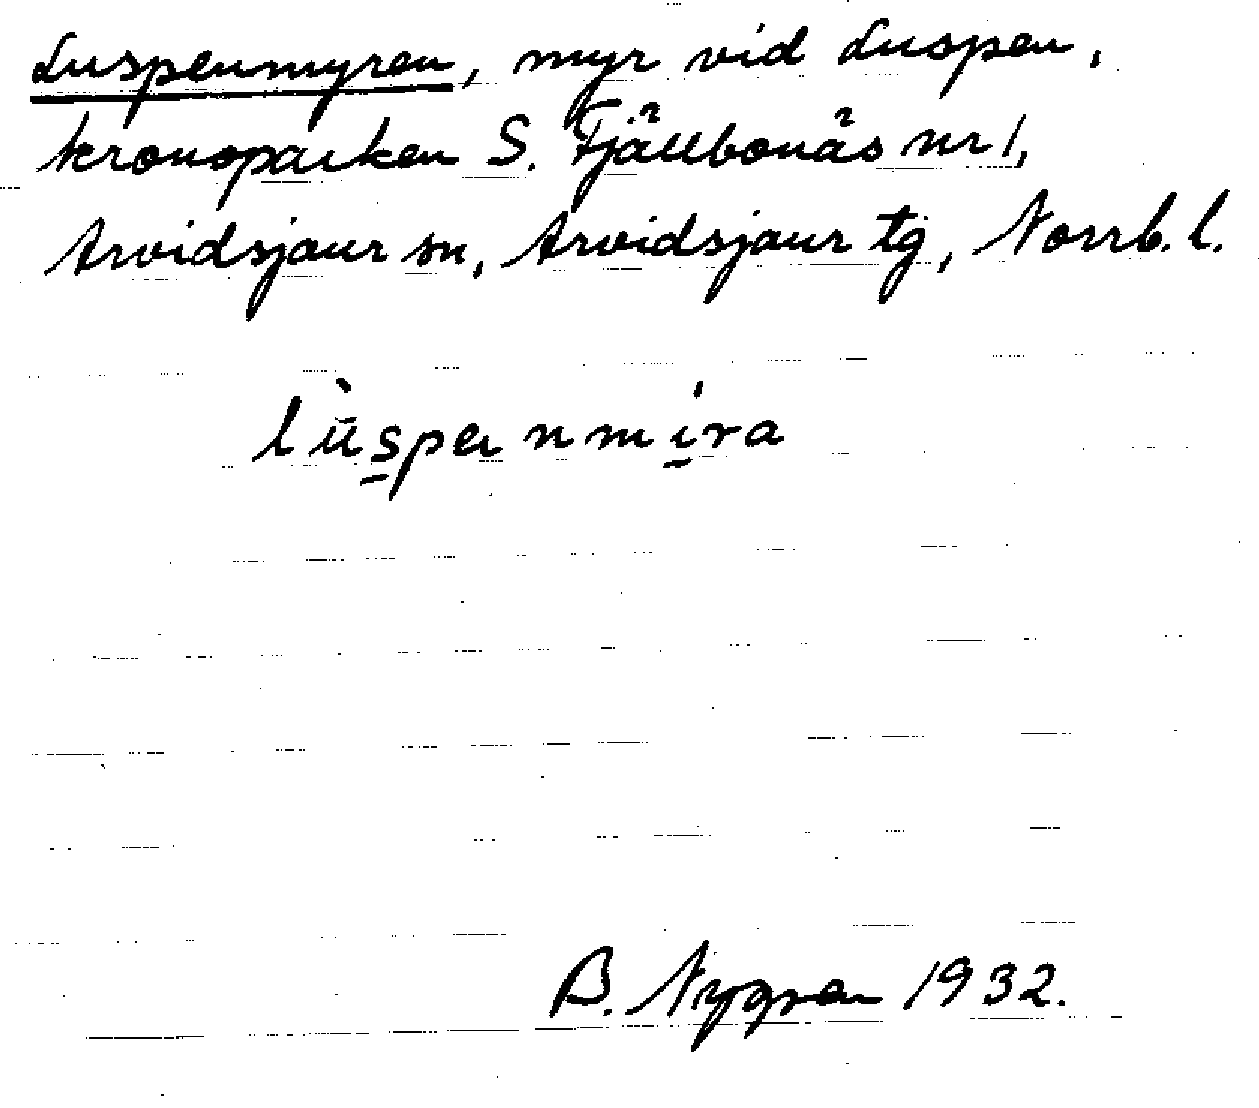 Luspenmyren, myr vid Luspen,
kronoparken S. Fjällbonäs nr 1,
Arvidsjaur sn, Arvidsjaur tg, Norrb. l.
lùspenmira
B. Nygren 1932.